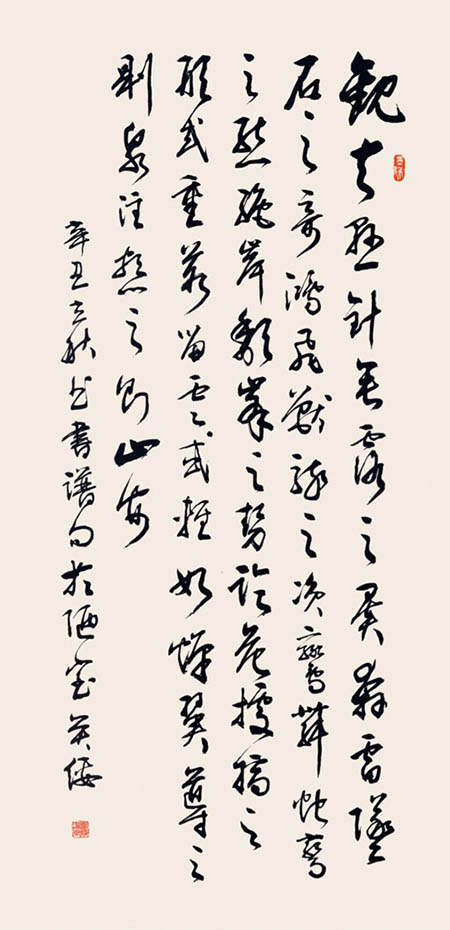 觀夫懸針垂露之異奔雷墜
石之奇鴻飛獸駭之資鸞舞蛇驚
之態絕岸頹峯之勢臨危據槁之
形或重若崩雲或輕如蟬翼導之
則泉注頓之則山安
辛丑立秋书書譜句於陋室